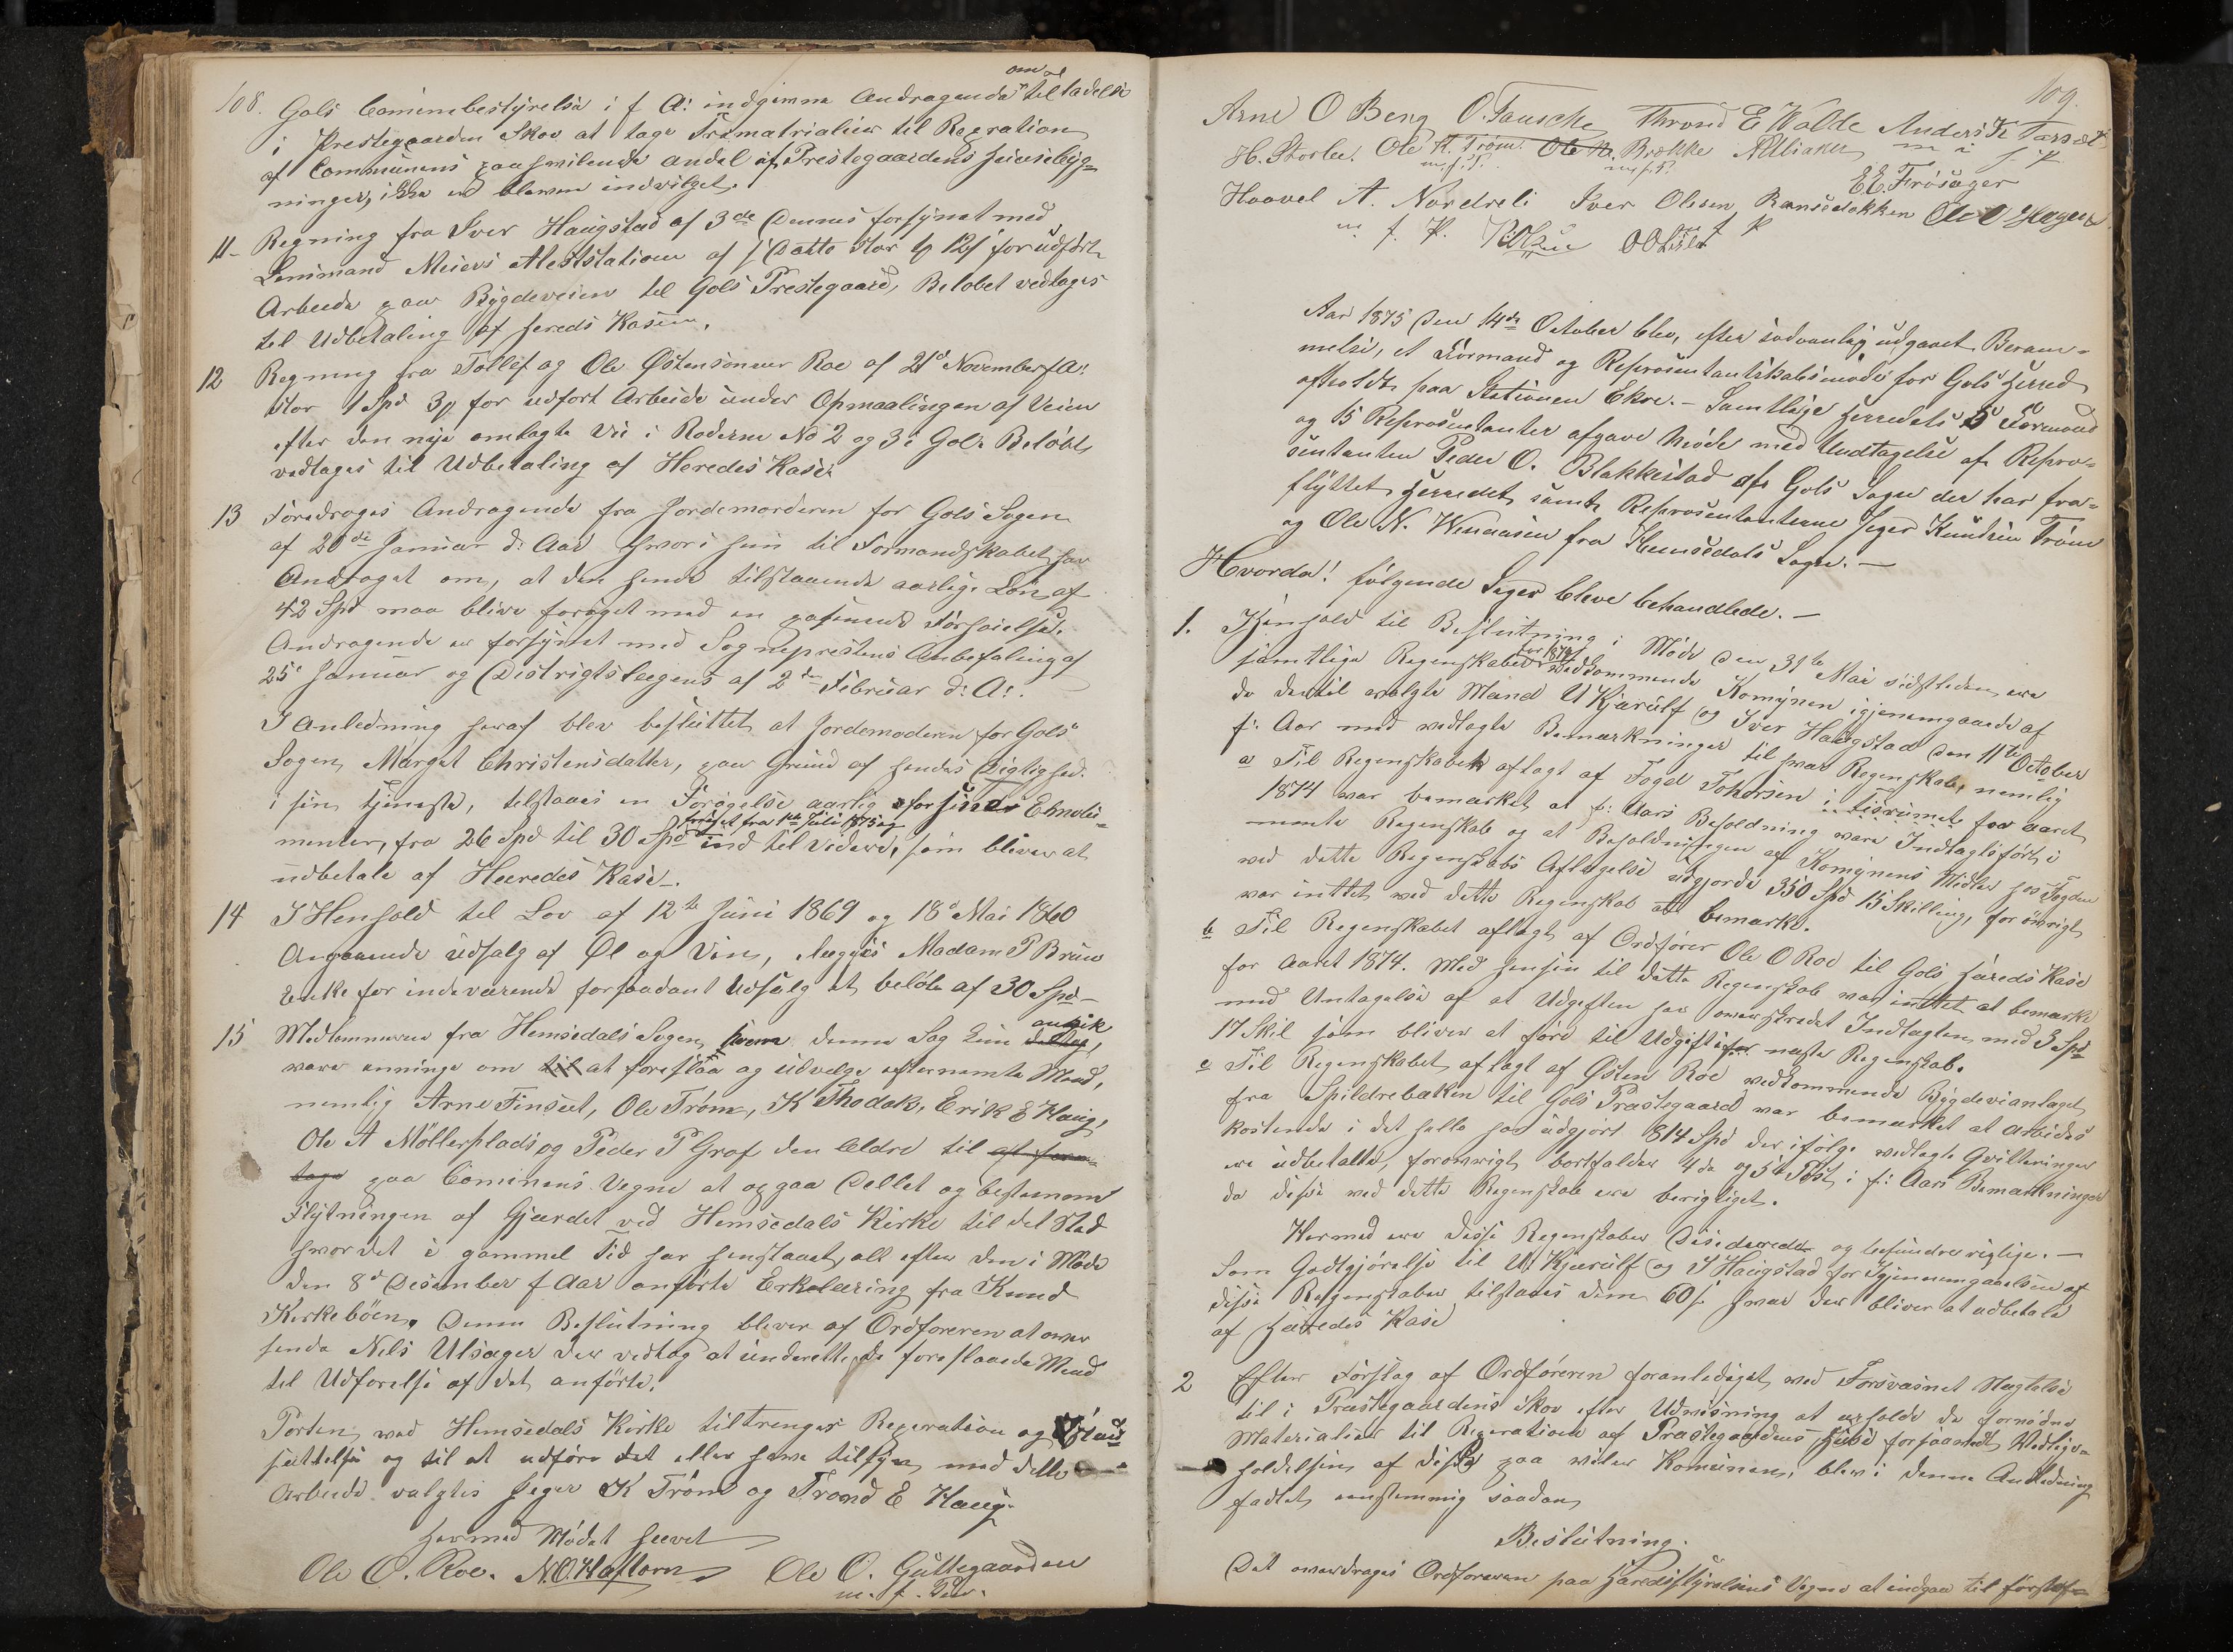 108.
Gols Comunebestyrelse i f A: indgivne Andragende om at tilladelse
i Prestegaarden Skov at tage Træmatrialier til Reperation
af Communens paahvilende andel af Prestegaardens Huusebyg=
ninger, ikke er bleven indvilget.
11- Regning fra Iver Haugstad af 3de Dennes forsynet med
Lensmand Meiers Atteststation af s Dato stor 12 s for udført
Arbeide paa Bygdeveien til Gols Prestegaard, Beløbet vedtages
til Udbetaling af Hereds Kassen.
12 Regning fra Tollef og Ole Østensønner Roe af 21d November f A:
stor 1 Spd 3 for udført Arbeide under Opmaalingen af Veien
efter den nye omlagte Vei i Roderne No 2 og 3 i Gol. Beløbet
vedtages til Udbetaling af Heredes Kasse
13 Foredroges Andragende fra Jordemorderen for Gols Sogen
af 20de Januar d: Aar hvori hun til Formandskabet har
Andraget om, at den hende tilstaaende aarlige Løn af
42 Spd maa blive forøget med en passende Forhøielse.
Andragende er forsynet med Sogneprestens Anbefaling af
25d Januar og Distrigtslægens af 2den Februar d: A:.
I Anledning heraf blev besluttet at Jordemoderen for Gols
Sogen, Marget Christensdatter, paa Grund af hendes Digtighed
i sin tjeneste, tilstaaes en Forøgelse aarlig for sine Emolu=
regnet fra 1ste Juli 1875 og
menter, fra 26 Spd til 30 Spd ind til videre, som bliver at
udbetale af Heeredes Kasse.
14 I Henhold til Lov af 12te Juni 1869 og 18d Mai 1860
Angaaende udsalg af Øl og Vin, lægges Madam P Bruun
Enke for indeværende forsaadant Udsalg et beløb af 30 Spd-
15 Medlemmerne fra Hemsedals Sogen, hvem denne Sag kun angik
vare enninge om at foreslaa og udvælge efternevnte Mend,
nemlig Arne Finset, Ole Trøm, K Thodok, Erik E Haug,
Ole A Möllerplads og Peder P Grøf den Eldre til
paa Cominens Vegne at opgaa Dellet og bestemme
Flytningen af Gjerdet ved Hemsedals Kirke til det Sted
hvor det i gammel Tid har henstaaet, alt efter den i Møde
den 8d Desember f Aar anførte Erkelæring fra Knud
Kirkebøen. Denne Beslutning bliver af Ordføreren at over
sende Nils Ulsager der vedtog at underrette de foreslaaede Mend
til Udførelse af det anførte.
Porten ved Hemsedals Kirke tiltrenger Reperation og Istand
settelse og til at udføre det eller have tilsyn med dette
Arbeide valgtes Jeger K Trøm og Trond E Haug.
Hermed Mødet heevet
Ole O. Roe. N.O. Haftorn Ole O. Guttegaarden
m. f. Pen.
109.
Arne O Beng O. Tausche Thrond E Wølde Anders K Tarset
H. Storlee. Ole K. Trøm. Ole N. Brekke A Uliaker m i f. P.
m. f. P. m. f. P. E E. Frøsager
Haavel A. Nordreli Iver Olesen Rensedokken Ole O Hagen
m. f. P.
Aar 1875 den 14de October blev, efter sædvanlig udgaaet Beram=
melse, et Formand og Representantskabsmøde for Gols Herred
afholdt paa Stationen Ekre. - Samtlige Herredets 5 Formænd
og 15 Representanter afgave Møde med Undtagelse af Repre=
sentanten Peder O. Blakkestad af Gols Sogn der har fra=
flyttet Herredet, samt Representanterne Jeger Knudsen Trøm
og Ole N. Venaasen fra Hemsedals Sogn. -
Hvorda! følgende Sager bleve behandlede. -
1. I Henhold til Beslutning i Møde den 31te Mai sidstleden ere
samtlige Regenskaber for 1874 vedkommende Komynen igjennemgaaede af
de dertil valgte Mænd U Kjærulf og Iver Haugstad den 11te October
f: Aar med vedlagte Bemærkninger til hver Regenskab, nemlig
a Til Regenskabet aflagt af Foged Tohørsen i Tisrumet for aaret
1874 var bemærket at f: Aars Besoldning vare Indtagtsført i
nevnte Regenskab og at Besoldningen af Komynens Midler hos Fogden
ved dette Regenskabs Aflegelse udgjorde 350 Spd 15 Skilling, for øvrigt
var inttet ved dette Regenskab at bemærke.
b Til Regenskabet aflagt af Ordfører Ole O Roe til Gols Hereds Kasse
for Aaret 1874. Med hensyn til dette Regenskab var inttet at bemærke
med Untagelse af at Udgiften har overskredet Indtægten med 3 Spd
17 Skil som bliver at føre til Udgift i neste Regenskab.
c Til Regenskabet aflagt af Østen Roe vedkommende Bygdeveianlæget
fra Spildrebakken til Gols Præstegaard var bemærket at arbeidet
kostende i det hele har udgjort 814 Spd der ifølge vedlagte Qvitteringer
ere udbetalte, forøvrigt bortfalder 4de og 5te Post i f: Aars Bemærkninger
da disse ved dette Regenskab ere berigtiget.
Hermed ere disse Regenskaber Desiderede og befundne rigtige. -
Som Godtgjørelse til U. Kjærulf og I Haugstad for Igjennemgaaelsen af
disse Regenskaber tilstaaes dem 60 s hver der bliver at udbetale
af Heeredes Kasse
2 Efter Forslag af Ordføreren foranlediget ved Forsvaret Negtelse
til i Præstegaardens Skov efter Udvisning at erholde de fornødne
Materialier til Reperation af Præstegaardens Huse forsaavidt Vedlige=
holdelsen af disse paa viler Komunen, blev i denne Anledning
fattet eenstemmig saadan
Beslutning.
Det overdrages Ordføreren paa Heredsstyrelsens Vegne at indgaa til